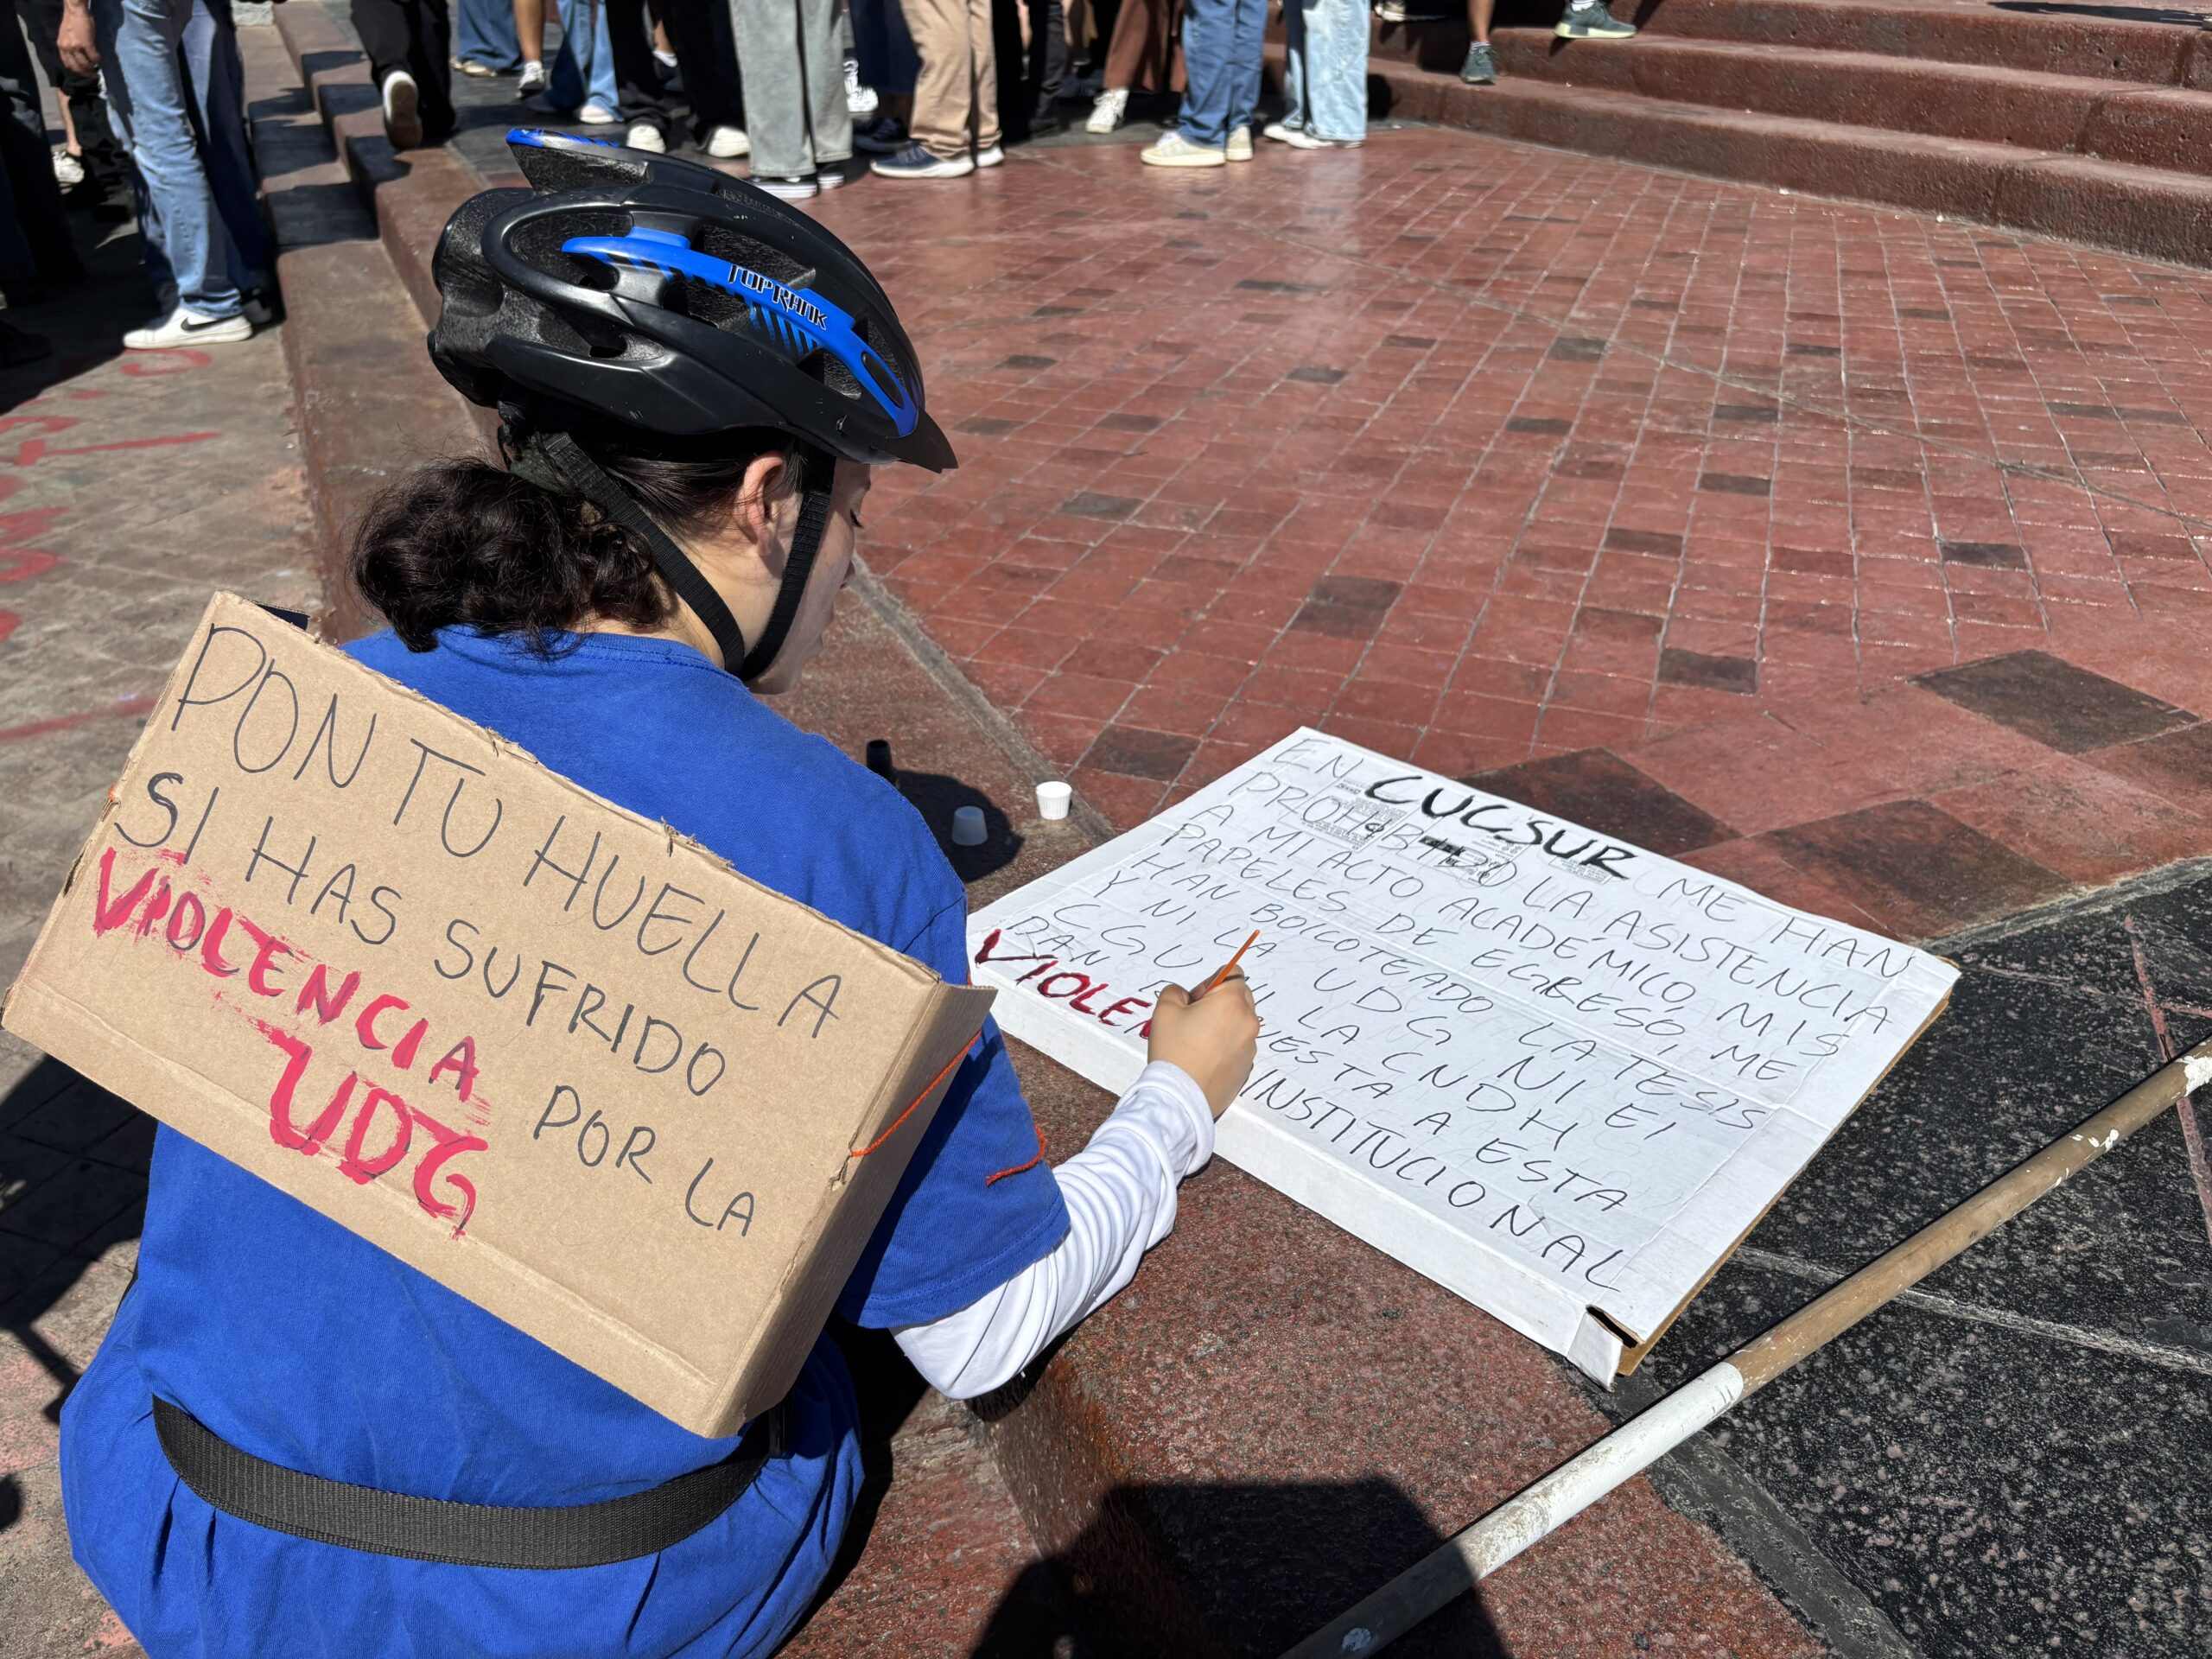 TOPRANK
PON TU HUELLA
SI HAS SUFRIDO POR LA
VIOLENCIA
UDG
EN CUCSUR ME HAN
PROHIBIDO LA ASISTENCIA
A MI ACTO ACADÉMICO, MIS
PAPELES DE EGRESO, ME
HAN BOICOTEADO LA TESIS
Y NI LA UDG NI EL
CGU NI LA CNDH
DAN ESTA A ESTA
VIOLEN INSTITUCIONAL